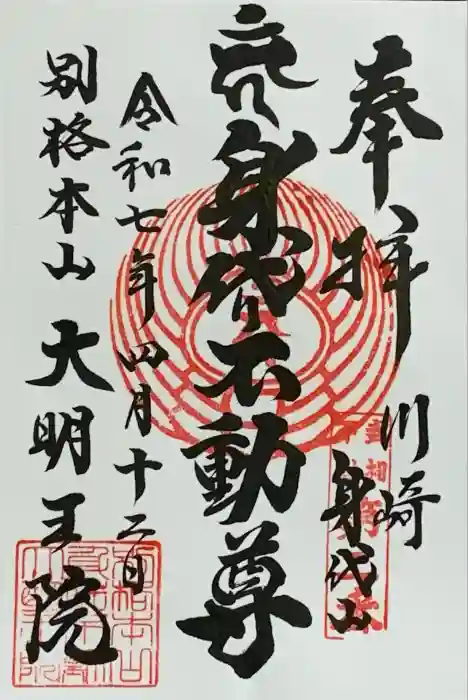 奉拝
川崎
身代山
身代不動尊
令和七年四月十二日
別格本山 大明王院